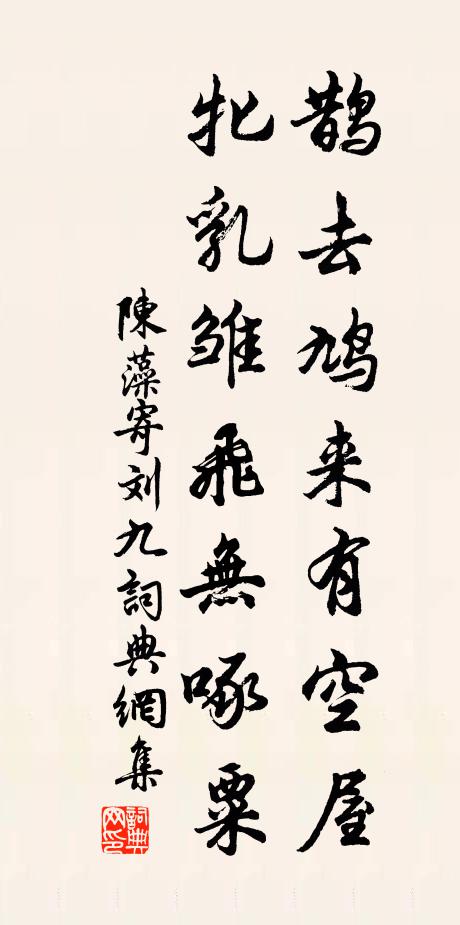 鹊去鸠来有空屋
牝乳雏飛無啄粟
陳藻寄刘九詞典網集
詞典网印